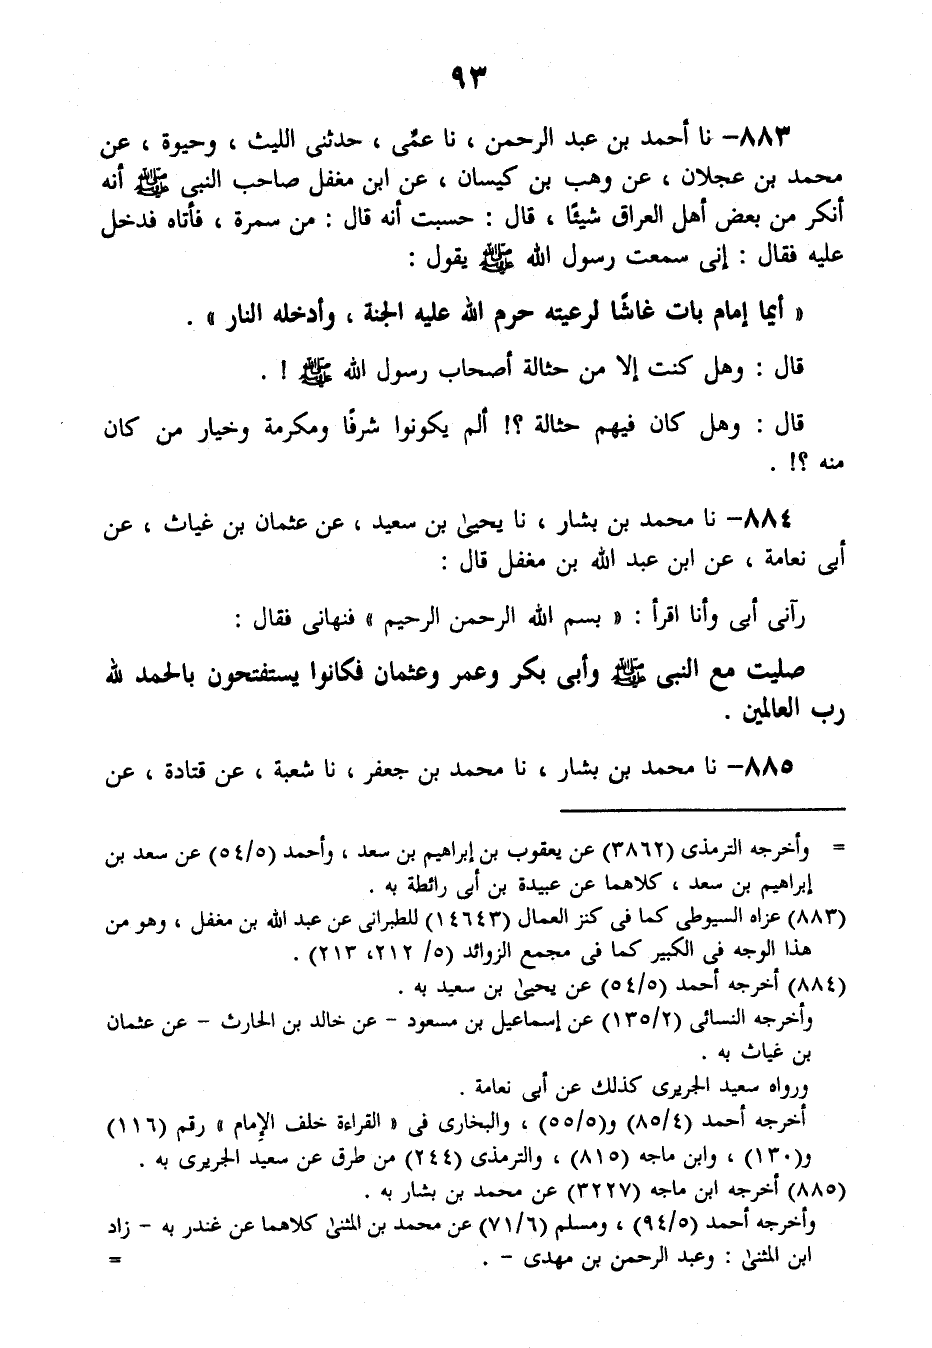 ٩٣
٨٨٣– نا أحمد بن عبد الرحمن ، نا عمِّى ، حدثنى الليث ، وحيوة ، عن
محمد بن عجلان ، عن وهب بن كيسان ، عن ابن مغفل صاحب النبى ﷺ أنه
أنكر من بعض أهل العراق شيئًا ، قال : حسبت أنه قال : من سمرة ، فأتاه فدخل
عليه فقال : إنى سمعت رسول الله ﷺ يقول :
« أيما إمام بات غاشًا لرعيته حرم الله عليه الجنة ، وأدخله النار » .
قال : وهل كنت إلا من حثالة أصحاب رسول الله ﷺ ! .
قال : وهل كان فيهم حثالة ؟! ألم يكونوا شرفًا ومكرمة وخيار من كان
منه ؟! .
٨٨٤– نا محمد بن بشار ، نا يحيىٰ بن سعيد ، عن عثمان بن غياث ، عن
أبى نعامة ، عن ابن عبد الله بن مغفل قال :
رآنى أبى وأنا اقرأ : « بسم الله الرحمن الرحيم » فنهانى فقال :
صليت مع النبى ﷺ وأبى بكر وعمر وعثمان فكانوا يستفتحون بالحمد لله
رب العالمين .
٨٨٥– نا محمد بن بشار ، نا محمد بن جعفر ، نا شعبة ، عن قتادة ، عن
= وأخرجه الترمذى (٣٨٦٢) عن يعقوب بن إبراهيم بن سعد ، وأحمد (٥٤/٥) عن سعد بن
إبراهيم بن سعد ، كلاهما عن عبيدة بن أبى رائطة به .
(٨٨٣) عزاه السيوطى كما فى كنز العمال (١٤٦٤٣) للطبرانى عن عبد الله بن مغفل ، وهو من
هذا الوجه فى الكبير كما فى مجمع الزوائد (٥/ ٢١٢، ٢١٣) .
(٨٨٤) أخرجه أحمد (٥٤/٥) عن يحيىٰ بن سعيد به .
وأخرجه النسائى (١٣٥/٢) عن إسماعيل بن مسعود – عن خالد بن الحارث – عن عثمان
بن غياث به .
ورواه سعيد الجريرى كذلك عن أبى نعامة .
أخرجه أحمد (٨٥/٤) و(٥٥/٥) ، والبخارى فى « القراءة خلف الإمام » رقم (١١٦)
و(١٣٠) ، وابن ماجه (٨١٥) ، والترمذى (٢٤٤) من طرق عن سعيد الجريرى به .
(٨٨٥) أخرجه ابن ماجه (٣٢٢٧) عن محمد بن بشار به .
وأخرجه أحمد (٩٤/٥) ، ومسلم (٧١/٦) عن محمد بن المثنىٰ كلاهما عن غندر به – زاد
ابن المثنىٰ : وعبد الرحمن بن مهدى – . =